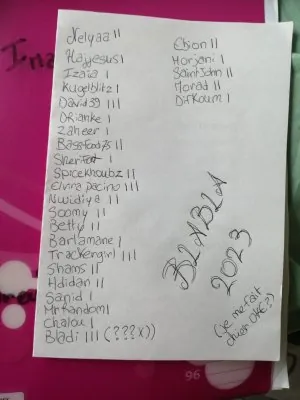 Nelyaa II
Hajjesus I
Izaia I
Kugelblitz I
David39 III
Drianke I
Zaheer I
BassFond75 II
SherFort I
Spicekhoubz II
Elvira pacino III
Nwidiya II
Soomy II
Betty II
Bartamane I
Trackengirl III
Shams II
Hdidan II
Sanid I
MrRandom I
Chalou I
Bladi III (???x))
Ebion II
Morjani I
SaintJohn II
Morad II
Difkoum I
BLABLA
2023
(je me fait
chier OK?)
Ina
96